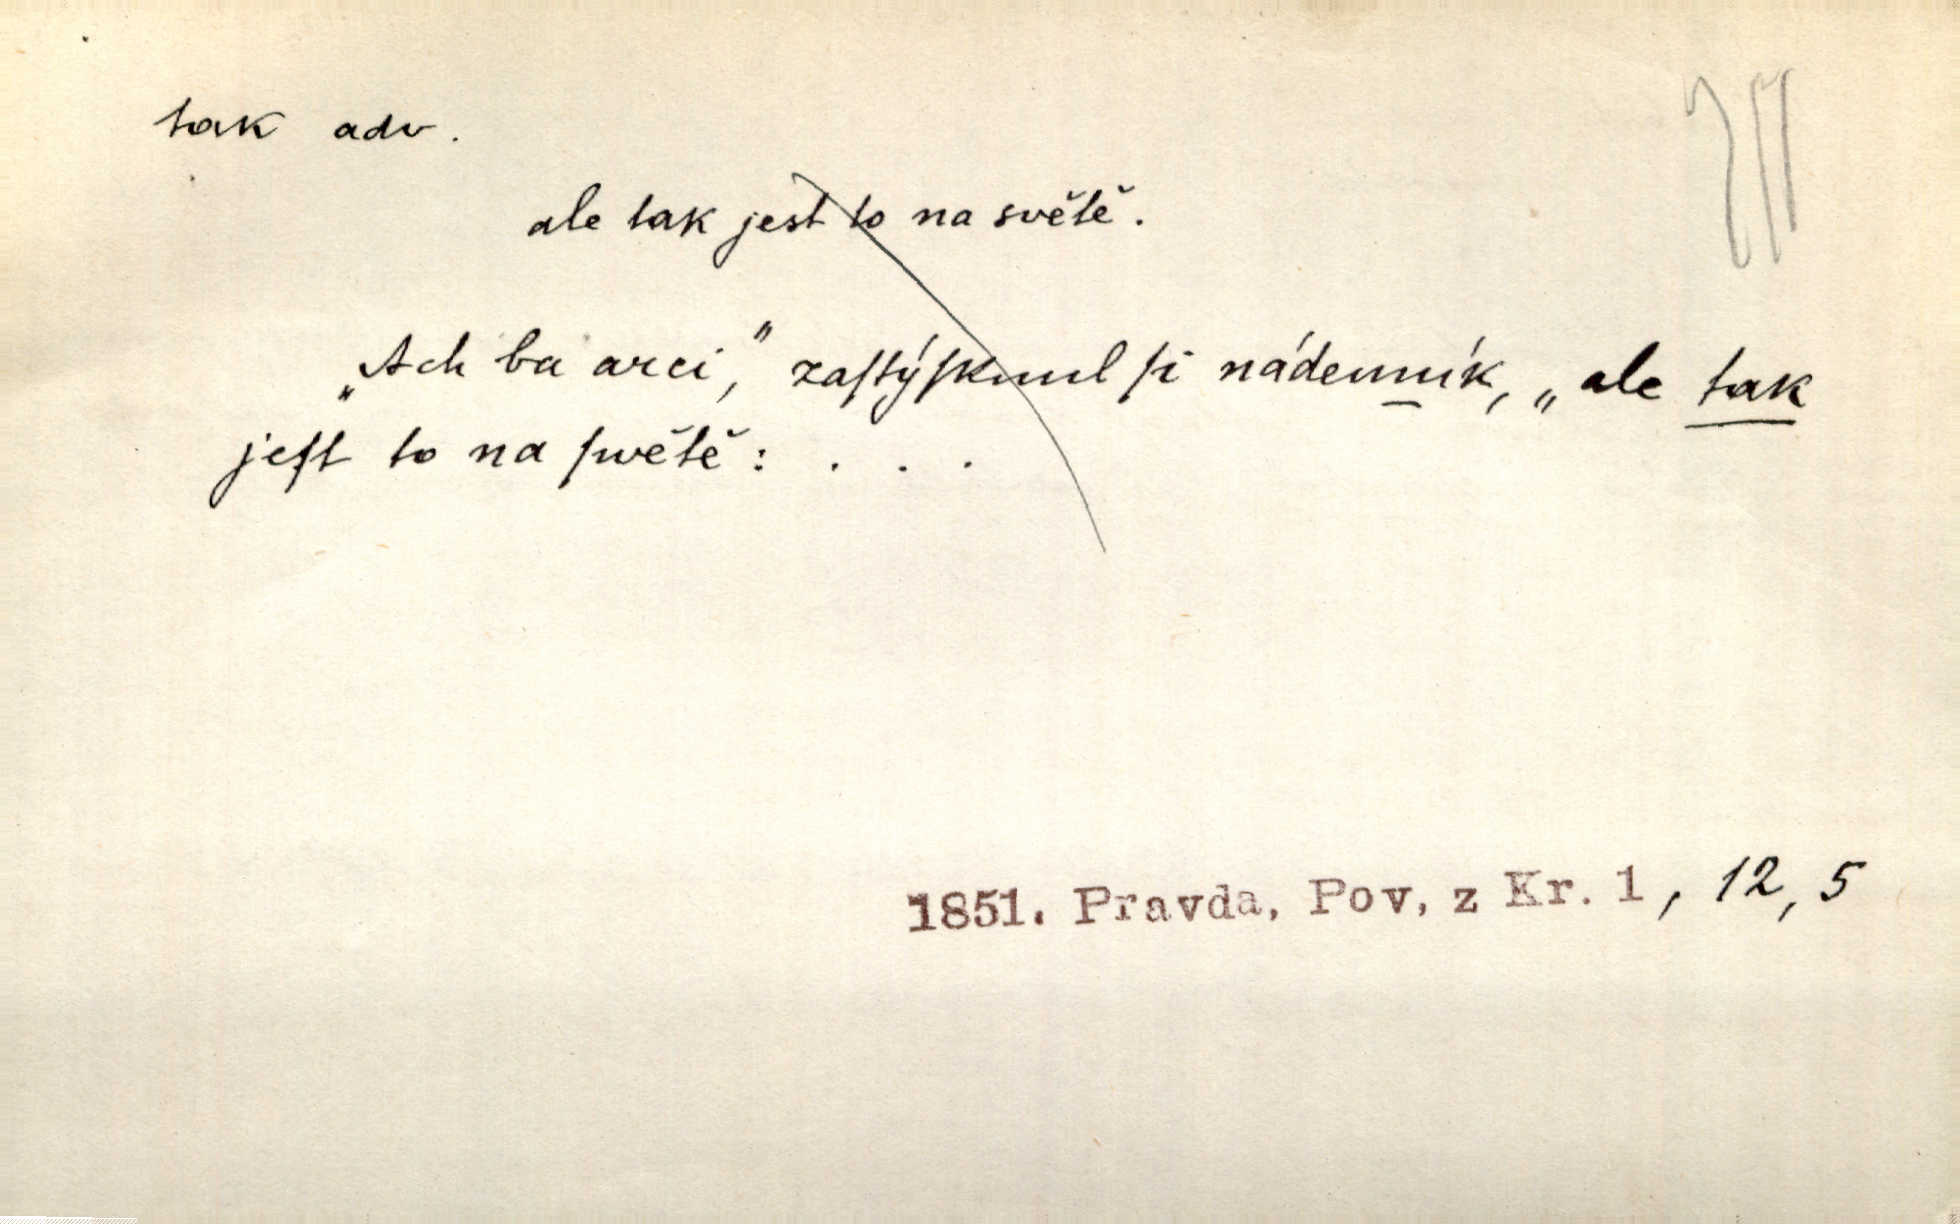 tak adv.
ale tak jest to na světě.
„Ach ba arci,” zaſtýſknul ſi nádenník, „ale tak
jeſt to na ſwětě: . . .
1851. Pravda, Pov. z Kr. 1, 12, 5